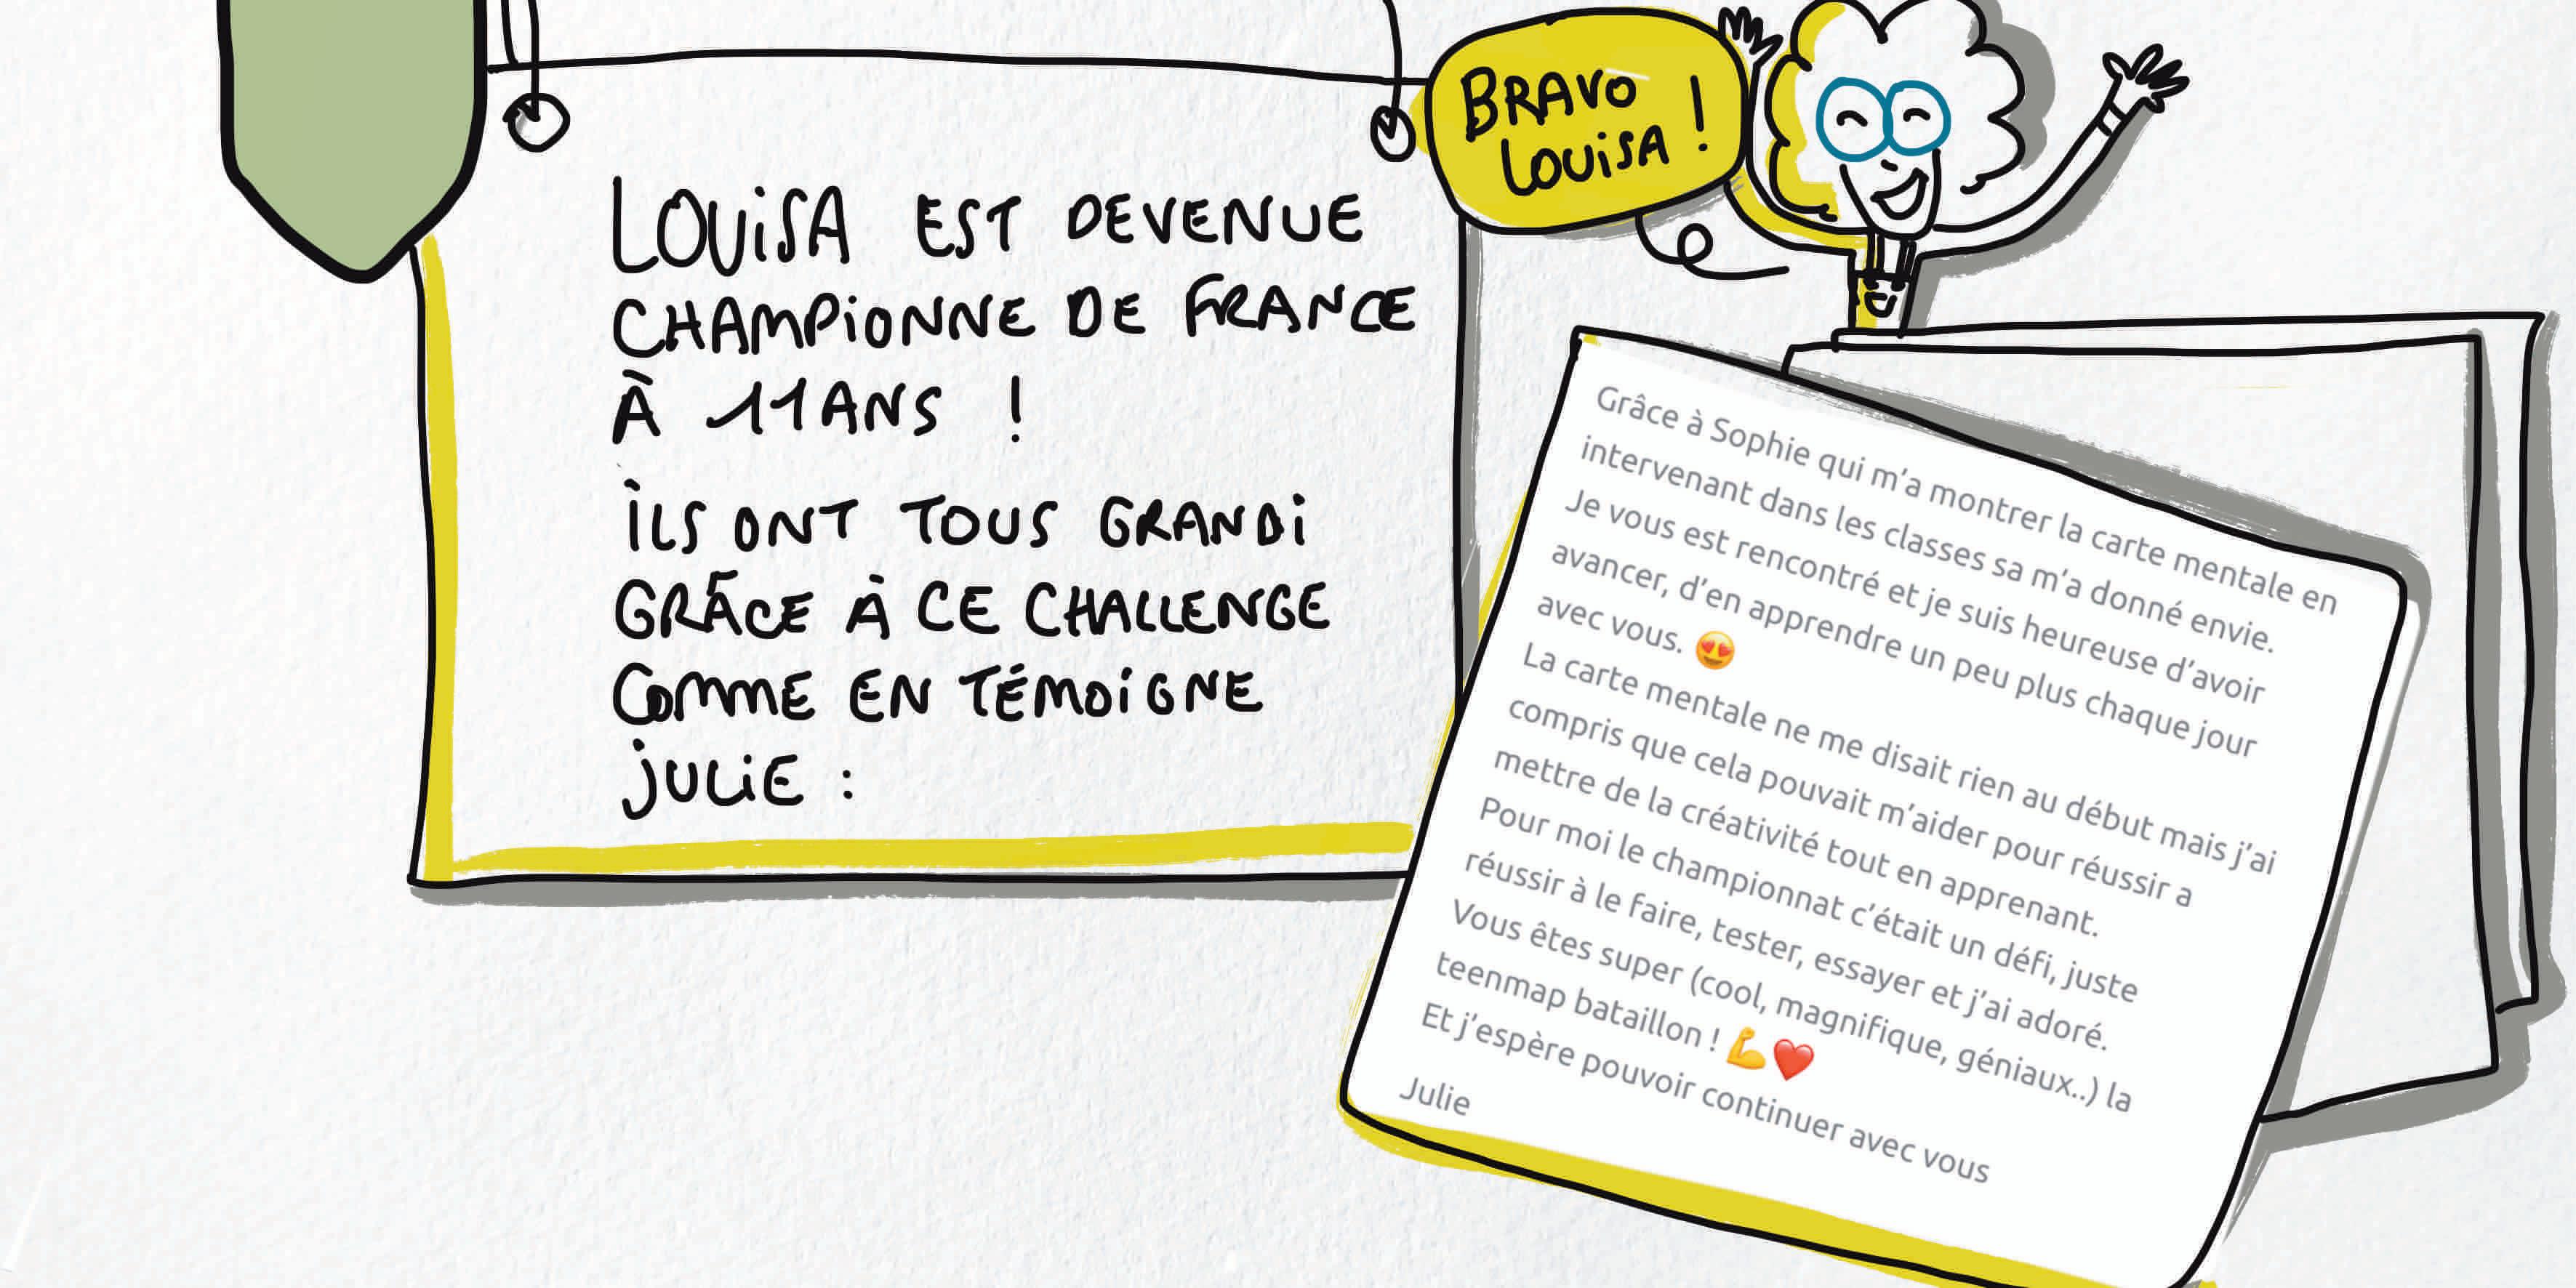 LOUiSA EST DEVENUE
CHAMPiONNE DE FRANCE
À 11 ANS !
iLS ONT TOUS GRANDi
GRÂCE À CE CHALLENGE
COMME EN TÉMOiGNE
JULiE :
BRAVO
LOUiSA !
Grâce à Sophie qui m’a montrer la carte mentale en
intervenant dans les classes sa m’a donné envie.
Je vous est rencontré et je suis heureuse d’avoir
avancer, d’en apprendre un peu plus chaque jour
avec vous. 😍
La carte mentale ne me disait rien au début mais j’ai
compris que cela pouvait m’aider pour réussir a
mettre de la créativité tout en apprenant.
Pour moi le championnat c’était un défi, juste
réussir à le faire, tester, essayer et j’ai adoré.
Vous êtes super (cool, magnifique, géniaux..) la
teenmap bataillon ! 💪❤️
Et j’espère pouvoir continuer avec vous
Julie